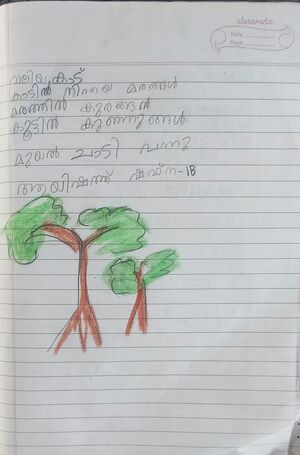 classmate
Date
Page
വലിയ കാട്
കാടിൽ നിറയെ മരങ്ങൾ
മരത്തിൽ കുരങ്ങൻ
കൂട്ടിൽ കുഞ്ഞുങ്ങൾ
മുയൽ ചാടി വന്നു
ആയിഷത്ത് ഷഫ്ന-1B